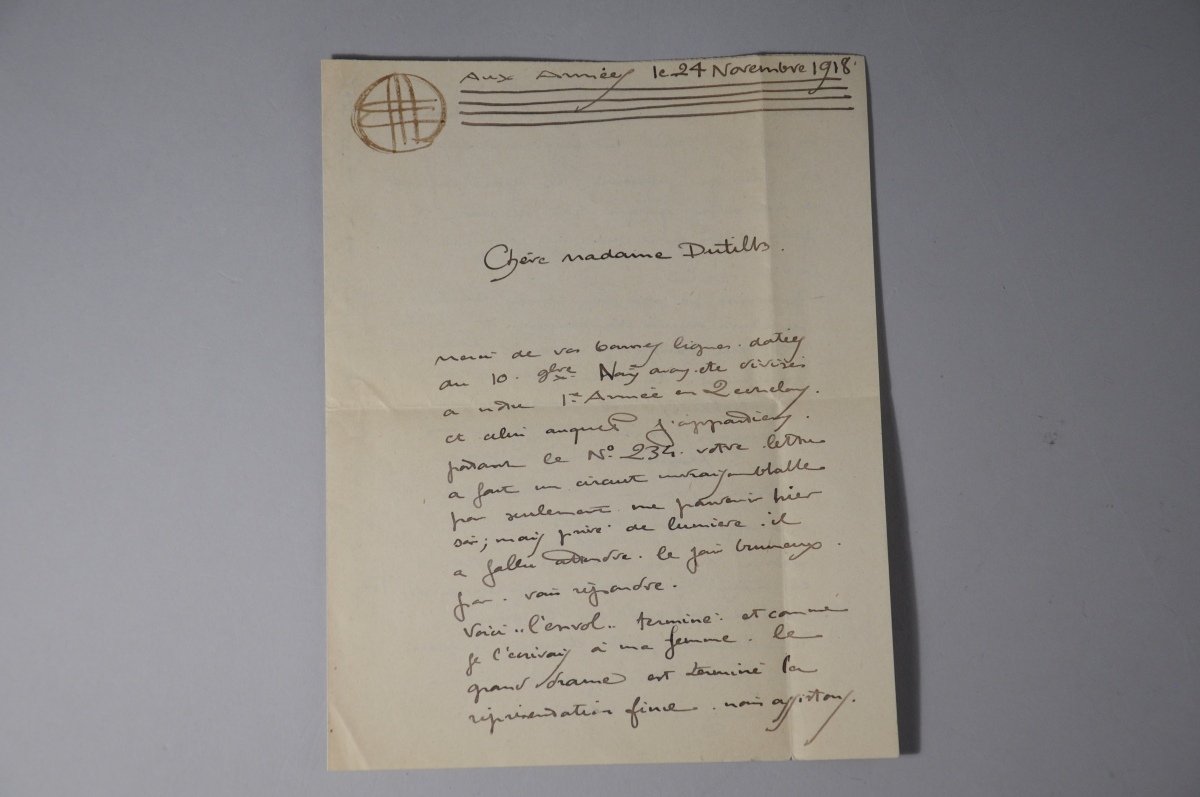 Aux Armées le 24 Novembre 1918
Chère Madame Dutilh
merci de vos bonnes lignes. datées
du 10. 9bre. Nous avons été divisés
a notre 1re Armée en 2 echelons.
et celui auquel j'appartiens.
portant le No 234. votre lettre
a fait un circuit invraisemblable
pour seulement me parvenir hier
soir; mais privé de lumière. il
a fallu attendre. le jour brumeux.
pour. vous répondre.
Voici.. l'envol.. terminé. et comme
je l'écrivais à ma femme. le
grand drame est terminé la
représentation finie. nous assistons.